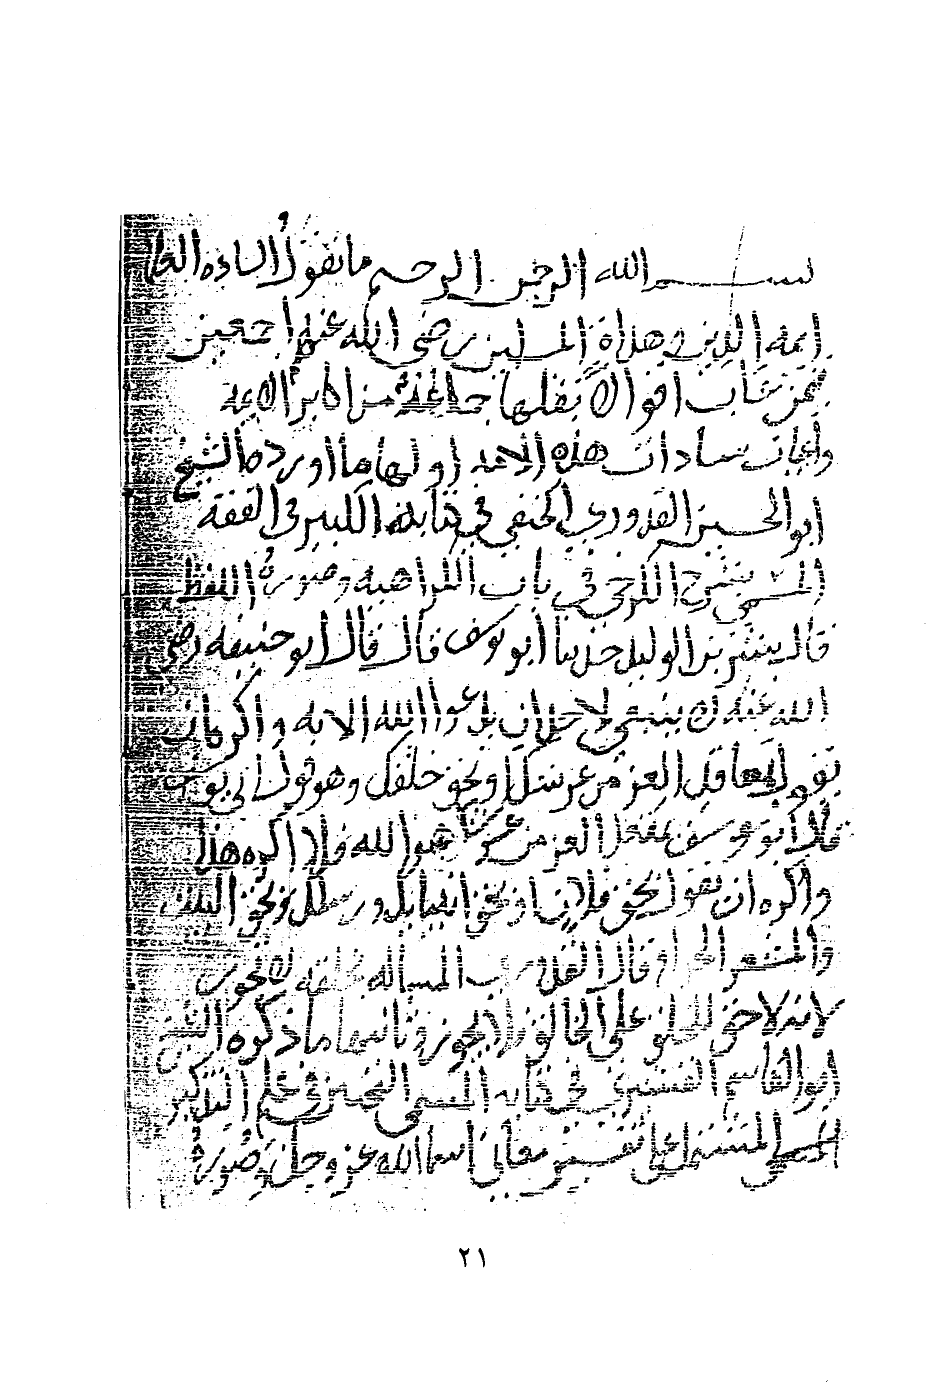 بسم الله الرحمن الرحيم ما تقول الساده العلما
ايمه الدين وهداة المسلمين رضي الله عنهم اجمعين
اقوالا نقلها جماعة من اكابر الايمه
واعيان سادات هذه الامه اولها ما اورده الشيخ
ابو الحسين القدوري الحنفي في كتابه الكبير في الفقه
المسمى بشرح الكرخي في باب الكراهيه وصورة اللفظ
قال بشر بن الوليد حدثنا ابو يوسف قال قال ابو حنيفه رضي
الله عنه لا ينبغي لاحد ان يدعوا الله الا به واكره ان
يقول بمعاقد العز من عرشك او بحق خلقك وهو قول ابي يوسف
قال ابو يوسف بمعقد العز من عرشه هو الله فلا اكره هذا
واكره ان يقول بحق فلان او بحق انبيايك ورسلك وبحق البيت
والمشعر الحرام قال القدوري المساله بخلقه لا تجوز
لانه لا حق للخلق على الخالق فلا يجوز وثانيها ما ذكره الشيخ
ابو القاسم القشيري في كتابه المسمى التحبير في علم التذكير
المشتمل على تفسير معاني اسما الله عز وجل وصورة
٢١